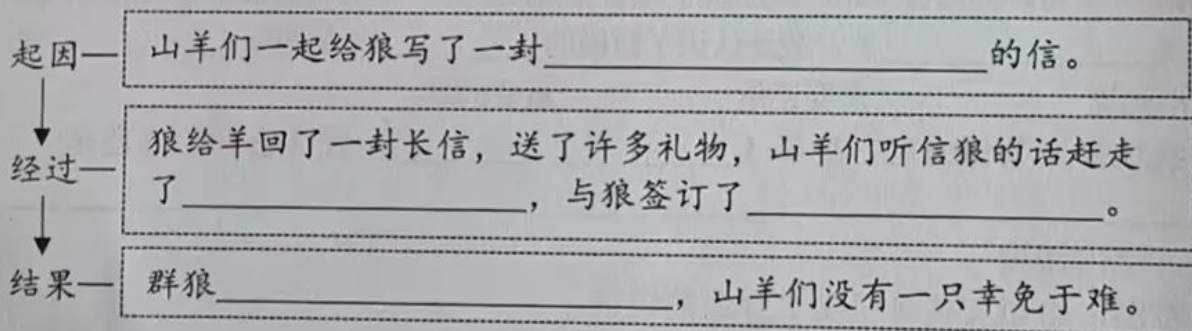 起因— 山羊们一起给狼写了一封____________________的信。
经过— 狼给羊回了一封长信，送了许多礼物，山羊们听信狼的话赶走
了________________，与狼签订了________________。
结果— 群狼____________________，山羊们没有一只幸免于难。